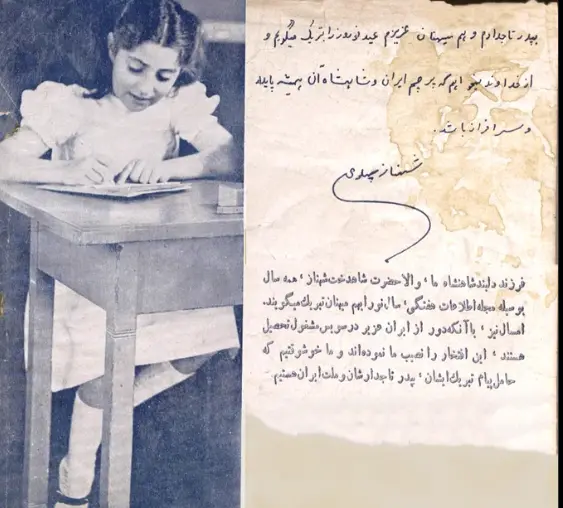 بپدر تاجدارم و هم میهنان عزیزم عید نوروز را تبریک میگویم و
از خداوند میخواهم که پرچم ایران و شاهنشاه آن همیشه پاینده
و سرافراز باشد.
شهناز پهلوی
فرزند دلبند شاهنشاه ما، والاحضرت شاهدخت شهناز، همه سال
بوسیله مجله اطلاعات هفتگی، سال نو را بهم میهنان تبریک میگویند.
امسال نیز، با آنکه دور از ایران عزیز در سویس مشغول تحصیل
هستند، این افتخار را نصیب ما نموده‌اند و ما خوشوقتیم که
حامل پیام تبریک ایشان، بپدر تاجدارشان و ملت ایران هستیم.